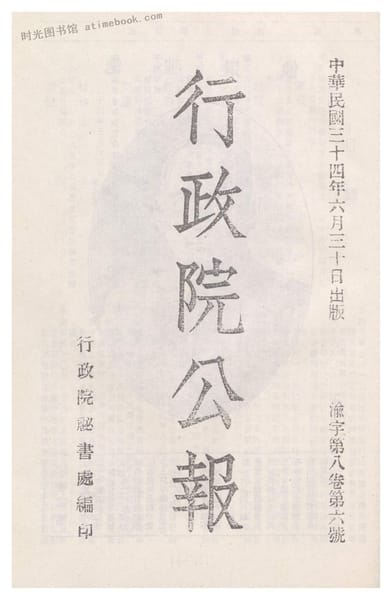 时光图书馆 atimebook.com
中華民國三十四年六月三十日出版
渝字第八卷第六號
行政院公報
行政院祕書處編印